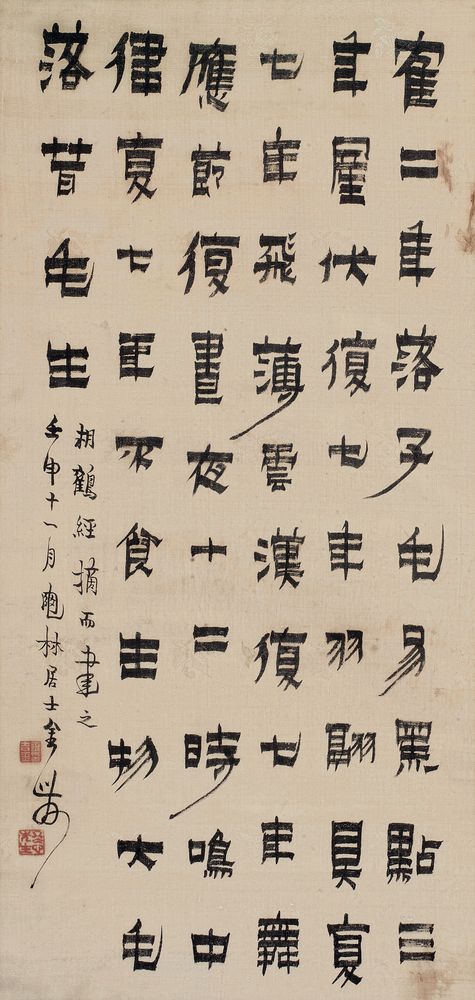 隺二年落子毛易黑點三
年伏復七年羽翮具夏
七年飛薄雲漢復七年舞
應節復晝夜十二時鳴中
律夏七年不食生物大毛
落毛生
相鶴經摘而書之
壬申十一月林居士金農